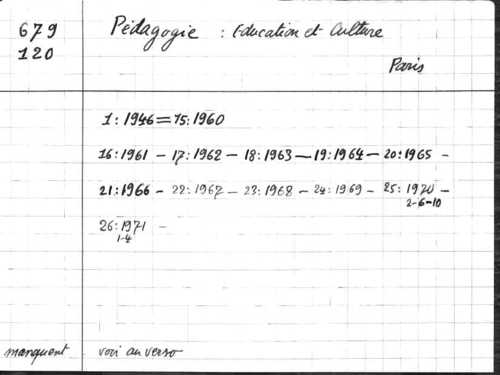 679 Pédagogie : Education et Culture
120
Paris
1:1946=15:1960
16:1961 - 17:1962 - 18:1963 - 19:1964 - 20:1965 -
21:1966 - 22:1967 - 23:1968 - 24:1969 - 25:1970 -
2-6-10
26:1971 -
1-4
manquent voir au verso